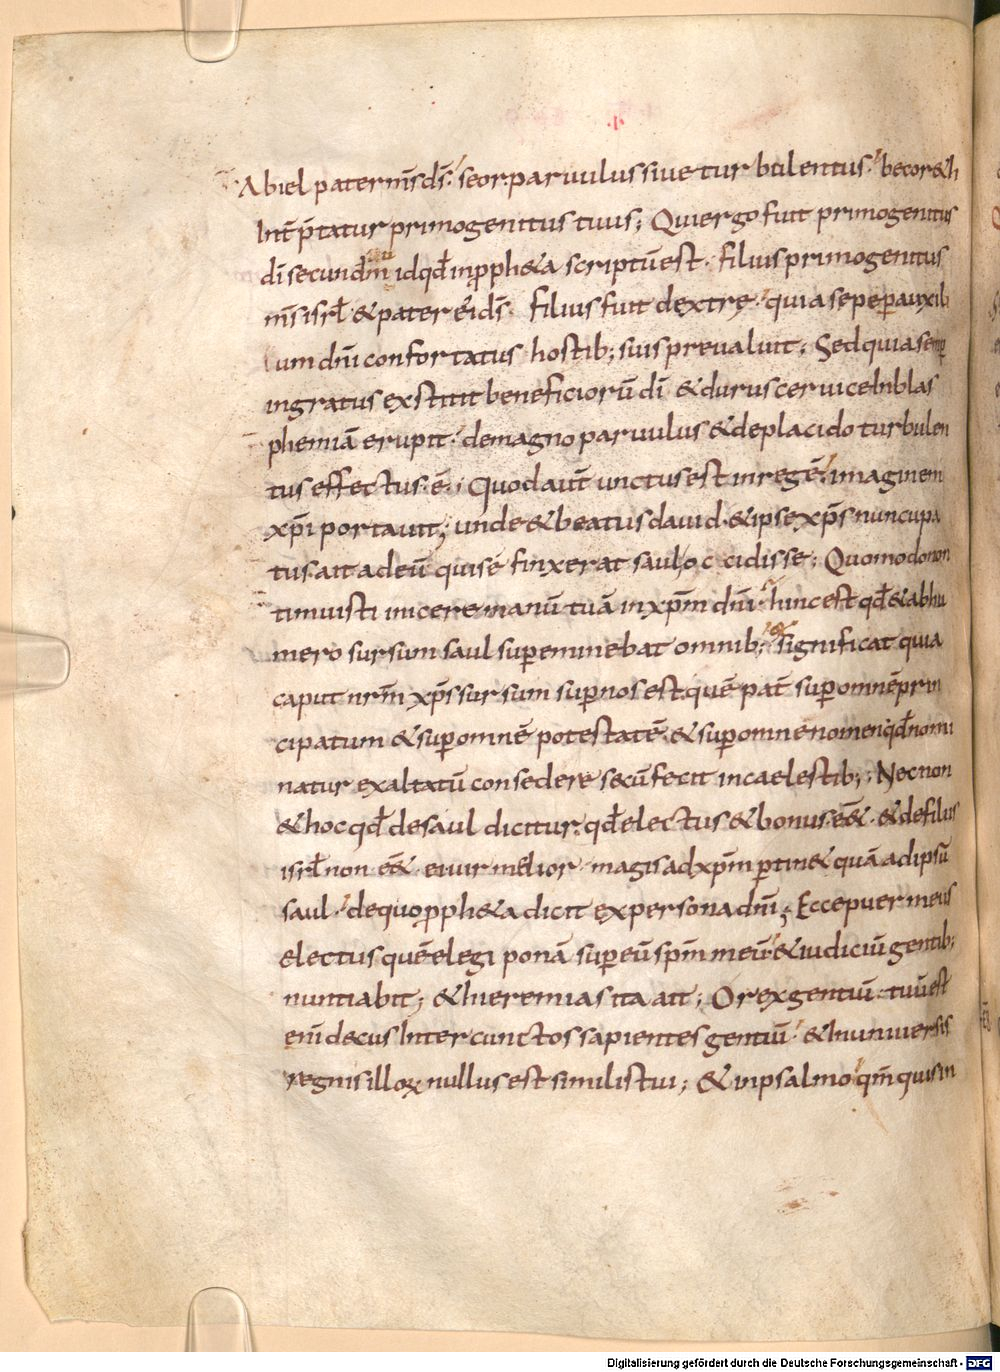 Abiel pater m̅s ds̅. seor. paruulus siue turbulentus. becor&h
Int̅p̅tatur primogenitus tuus; Quiergo fuit primogenitus
di̅ secundu̅ id qđ in ꝓph&a scriptu̅ est. filius primogenitus
m̅s isrl̅ & pater ei ds̅. filius fuit dextrę. quia sepe ꝑ auxili
um dn̅i confortatus hostib; suis preualuit; Sed quia semꝑ
ingratus exstitit beneficioru̅ di̅ & durus ceruice In blas
phemia̅ erupit. de magno paruulus & de placido turbulen
tus effectus. e̅; Quod aut̅ unctus est in rege̅. imaginem
xp̅i portauit; unde & beatus dauid. & ipse xp̅s nuncupa
tus. ait ad eu̅ qui se finxerat saul occidisse; Quomodo non
timuisti mitere manu̅ tua̅ in xp̅m dn̅i. hinc est qđ & ab hu
mero sursum saul suꝑeminebat omnib; significat quia
caput nr̅m xp̅s sursum suꝑ nos est. que̅ pat̅ suꝑ omne̅ prin
cipatum & suꝑ omne̅ potestate̅. & suꝑ omne nomen qđ nomi
natur exaltatu̅ consedere secu̅ fecit in caelestib;; Nec non
& hoc qđ de saul dicitur. qđ electus & bonus. e̅&. & de filiis
isrl̅ non e̅& eiuir melior. magis ad xp̅m ꝑtin& qua̅ ad ipsu̅
saul. de quo ꝓph&a dicit ex persona dn̅i; Ecce puer meus
electus que̅ elegi pona̅ suꝑ eu̅ sp̅m meu̅. & iudiciu̅ gentib;
nuntiabit; & hieremias ita ait; O rex gentiu̅. tuu̅ est
eni̅ decus Inter cunctos sapientes gentiu̅. & In uniuersis
regnis illoꝝ nullus est similis tui; & in psalmo qm̅ quis in
Digitalisierung gefördert durch die Deutsche Forschungsgemeinschaft - DFG